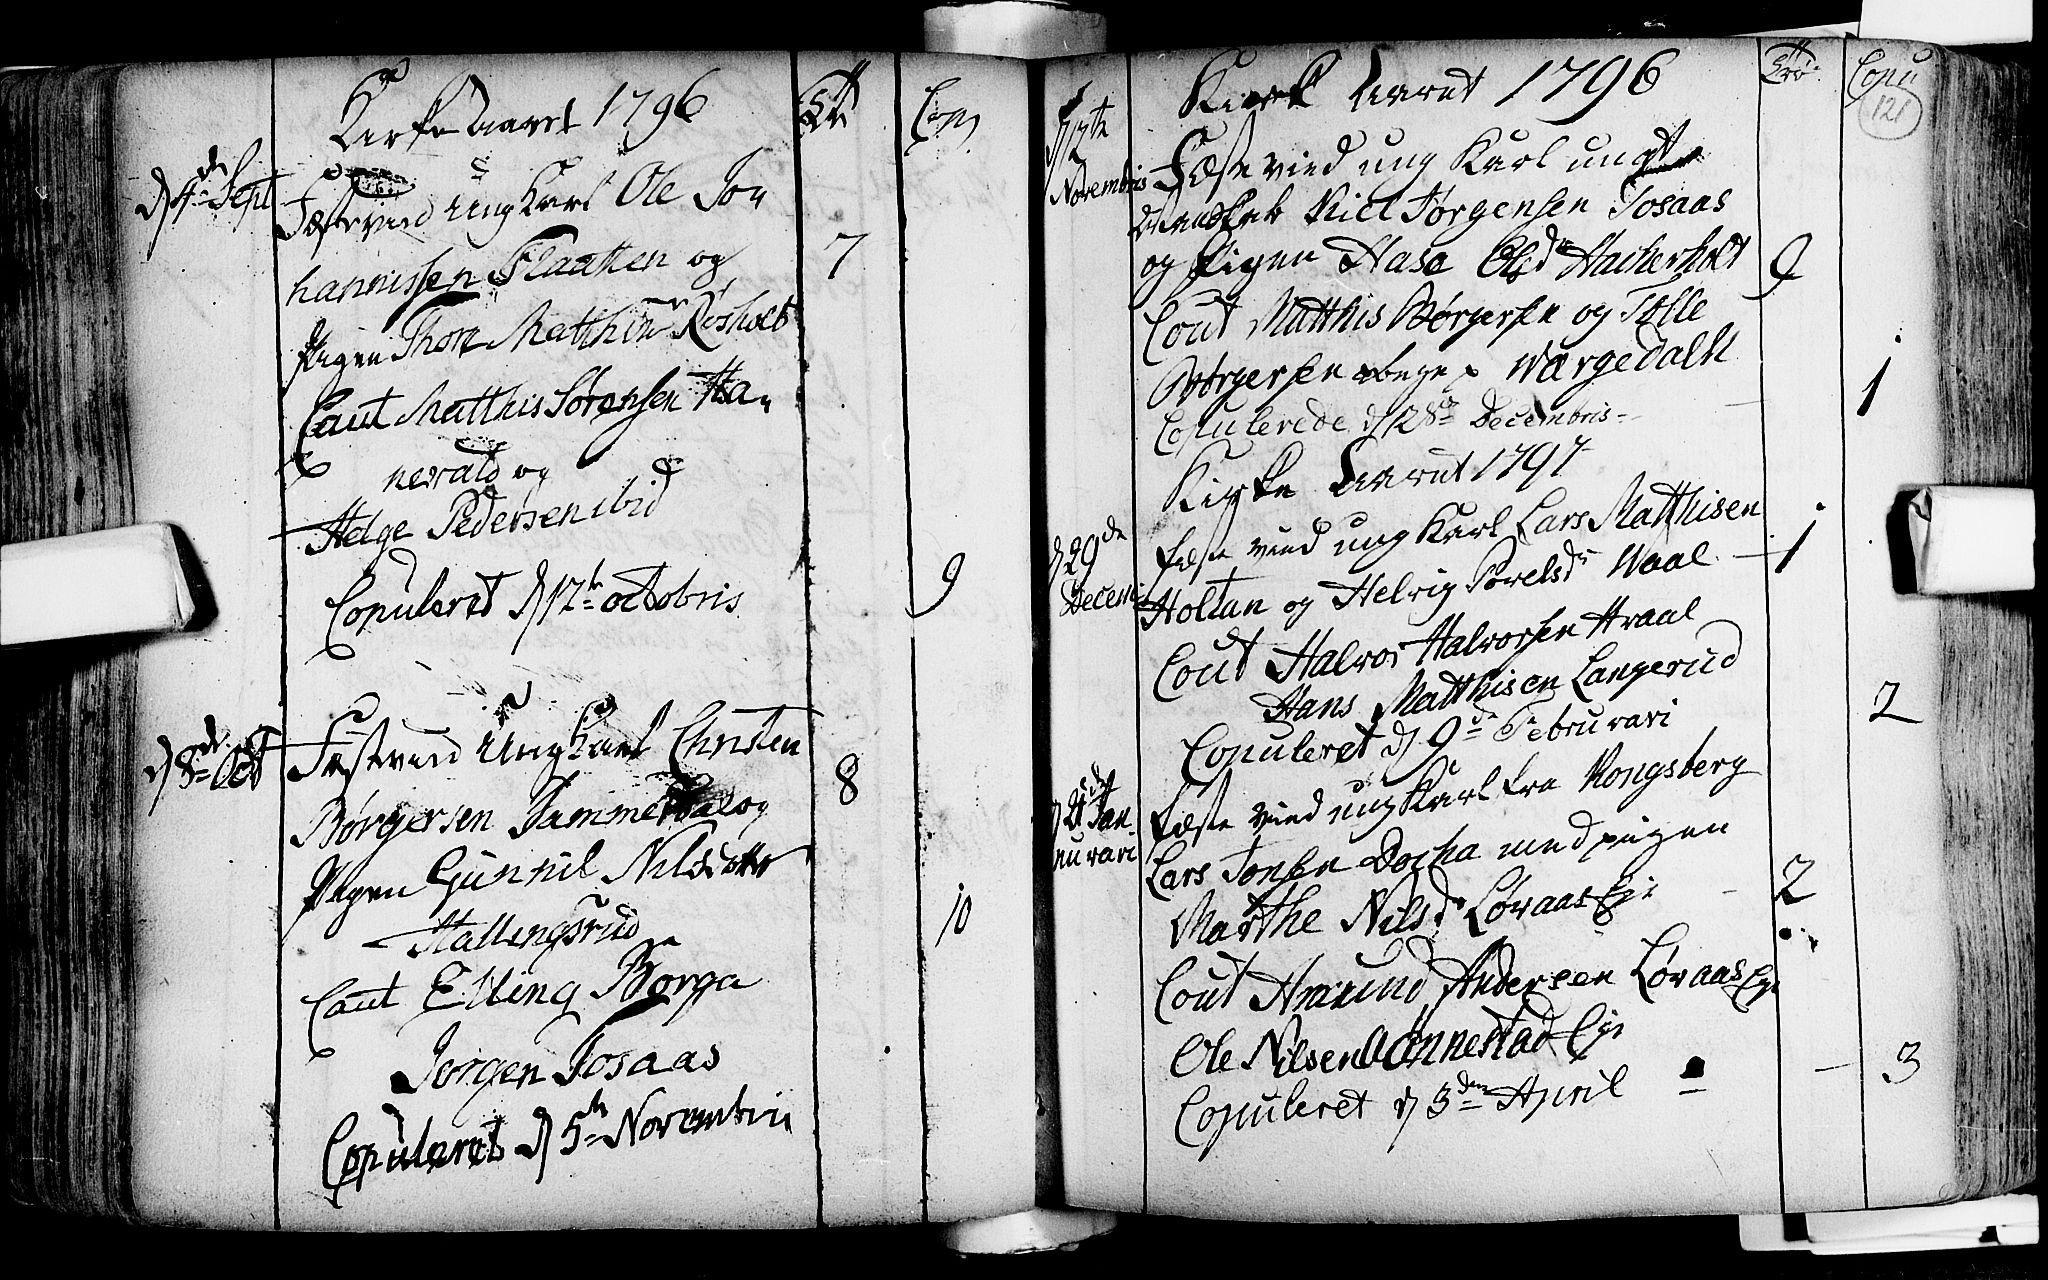 Kirke Aaret 1796
Cop
d 4de Sept
Festevied Ung Karl Ole Jo=
hannissen Flaatten og
7
Pigen Thore Matthisdr Røsholt
Caut Matthis Sørensen Ha=
nevald og
Helge Pedersen ibid
Copuleret d 12te Octobris
9
d 8de Oct
Festevied Ung Karl Christen
Børgersen Dammerdal og
8
Pigen Gunnil Nilsdatter
Hallingsrud
10
Caut Elling Borga
Jørgen Fosaas
Copuleret d 5te Novembris
Kirke Aaret 1796
Tro
Copu
121
d 12te
Novembris
Feste vied ung Karl ung
Niel Jørgensen Fosaas
og Pigen Aase Olsdr Hacherholt
9
Cout Matthis Børgersen og Tolle
Børgersen begge Wargedalk
1
Copulerede d 28de Decembris
Kirke Aaret 1797
d 29de
Decemb
Feste vied ung Karl Lars Matthisen
Holtan og Helvig Povelsdr Waal
1
Cout Halvor Halvorsen Hvaal
Hans Matthisen Langerud
2
Copuleret d 9de Februvari
d 21de Jan
nuvari
Feste vied ung Karl fra Kongsberg
Lars Jonsen Docka med pigen
Marthe Nilsdr Løvaas Eje
2
Cout Amund Andersen Løvaas Eje
Ole Nilsen Wønnestad Eje
3
Copuleret d 3den April